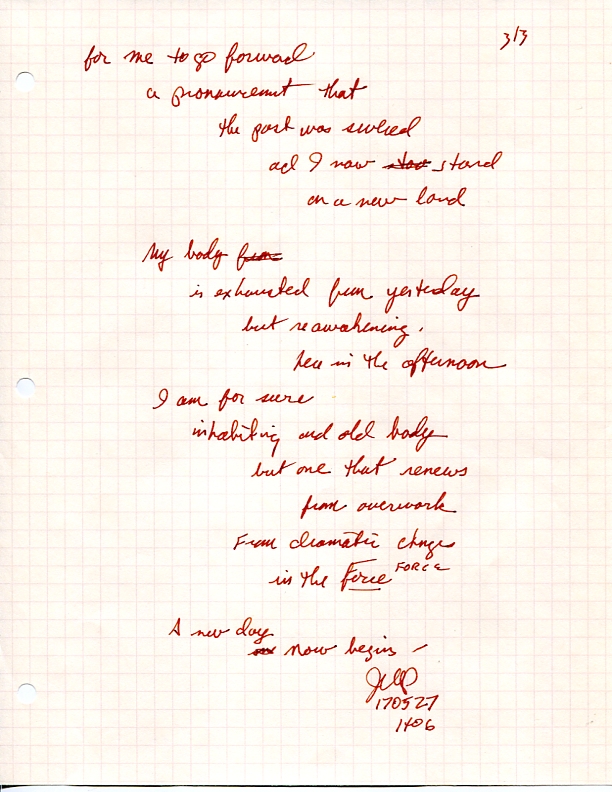 3/3
for me to go forward
a pronouncement that
the past was
and I now stand
on a new land
My body
is exhausted from yesterday
but reawakening,
here in the afternoon
I am for sure
inhabiting and old body
but one that renews
from overwork
From dramatic change
in the Force FORCE
A new day
now begins –
170527
1406